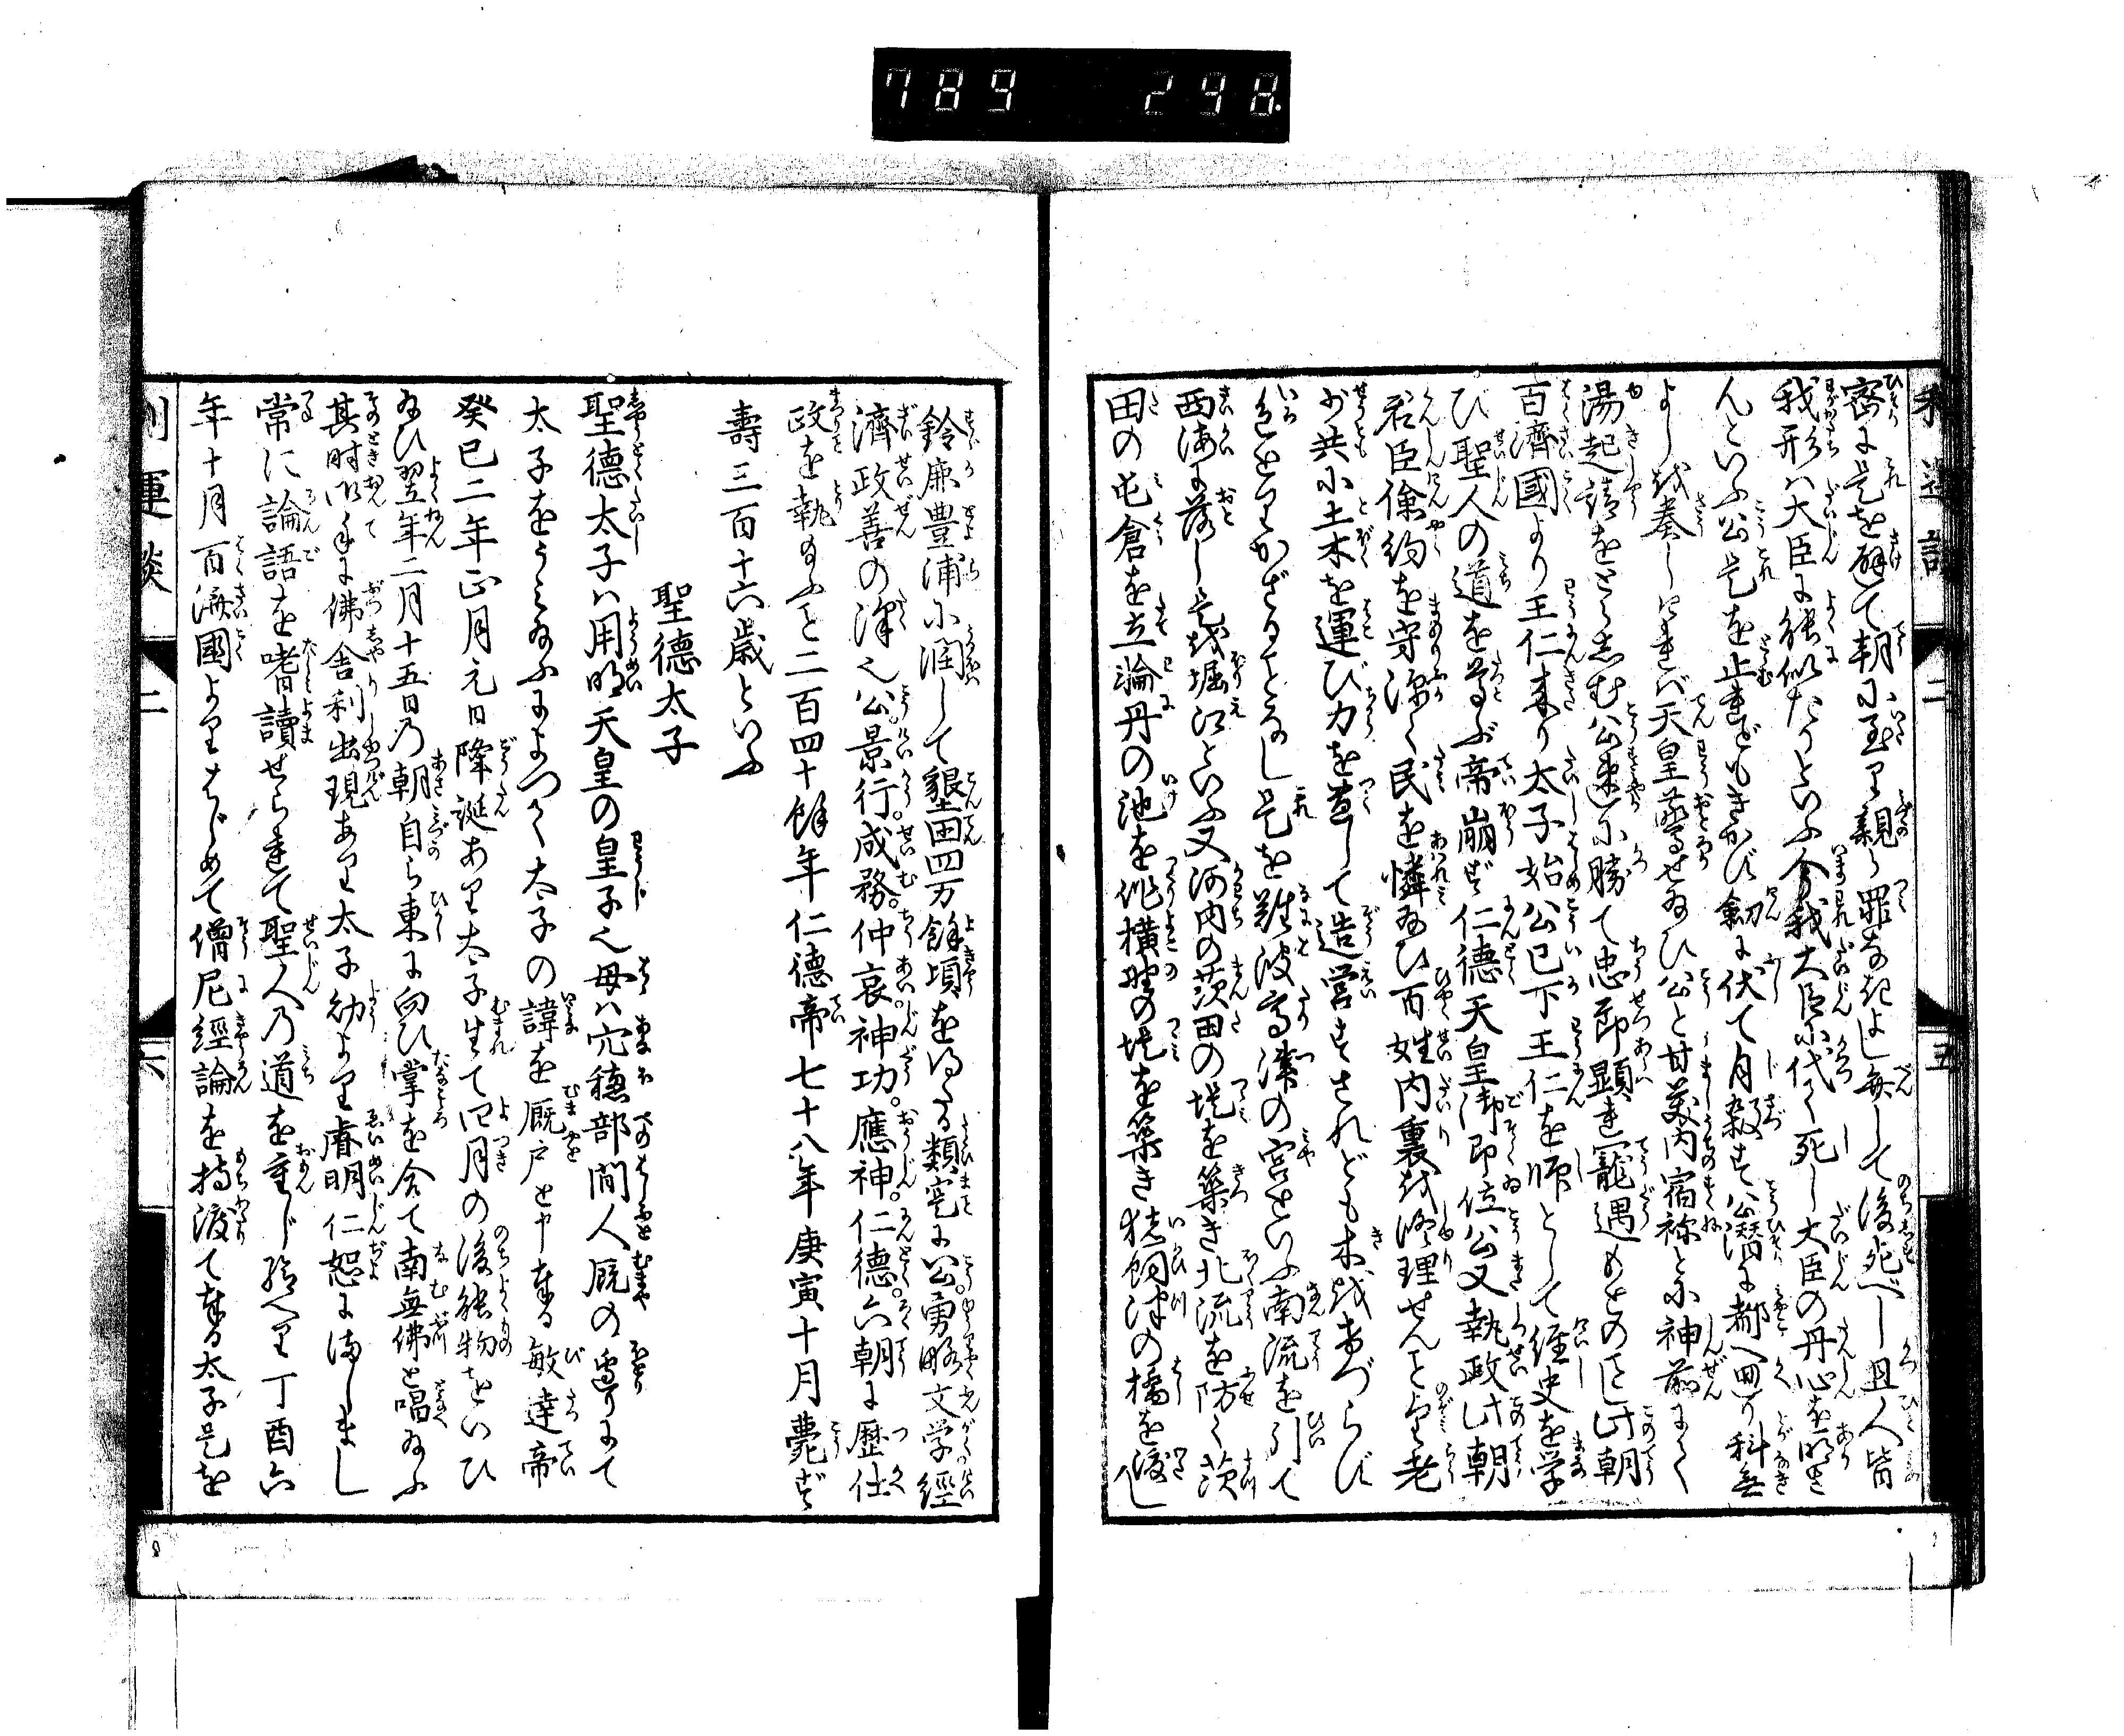 789 298
密に是を避て朝に至り親ら罪なきよしを無して後死べし且人皆
我形ハ大臣に能似たりといふ今我大臣に代て死し大臣の丹心を明さ
んといふ公是を止れどもきかず剣に伏て自殺す公潜に都へ回り科無
よし越奏しけれバ天皇驚せ給ひ公と甘美内宿祢とに神前にて
湯起請をとらしむ公速に勝て忠節顕れ寵遇もとのごとし此朝
百濟國より王仁来り太子始公已下王仁を師として経史を学
ひ聖人の道を尊ぶ帝崩ず仁德天皇御即位公又執政此朝
君臣倹約を守深く民を憐給ひ百姓内裏越修理せんと望老
少共に土木を運び力を盡して造営すされども木越けづらず
色をもかざることなし是を難波高津の宮といふ南流を引て
西海に落し是越堀江といふ又河内の茨田の堤を築き北流を防く茨
田の屯倉を立淪丹の池を作横野の堤を築き猪飼津の橋を渡し
鈴鹿豊浦に潤して墾田四万餘頃をゆたる類寔に公勇略文学經
濟政善の津也公景行。成務。仲哀。神功。應神。仁德。六朝に歴仕
政を執給ふこと二百四十餘年仁德帝七十八年庚寅十月薨ず
壽三百十六歳といふ
聖德太子
聖德太子ハ用明天皇の皇子也母ハ穴穗部間人厩の邊りにて
太子をうみ給ふによつて太子の諱を厩戸と申奉る敏達帝
癸巳二年正月元日降誕あり太子生て四月の後能物をいひ
給ひ翌年二月十五日乃朝自ら東に向ひ掌を合て南無佛と唱給ふ
其时御手に佛舎利出現あり太子幼より睿明仁恕にましまし
常に論語を嗜讀せられて聖人乃道を重じ給へり丁酉六
年十月百濟國よりはじめて僧尼經論を持渡て奉る太子是を
二
六